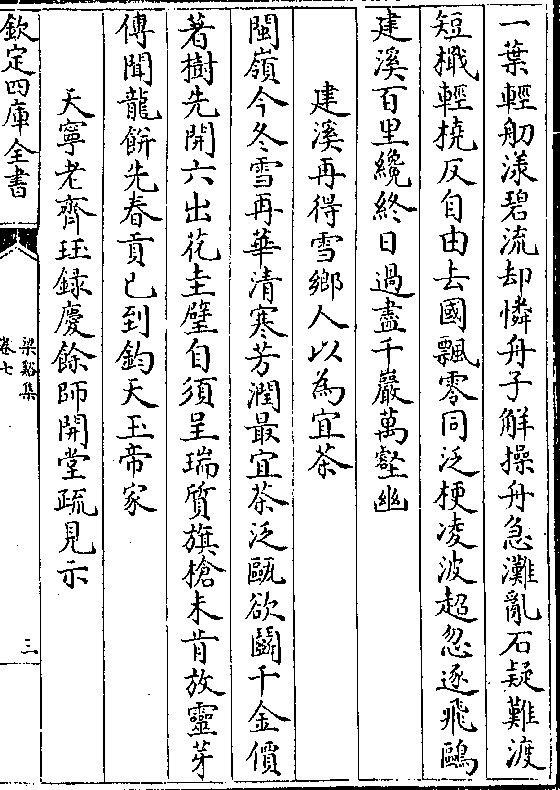 一葉輕舠漾碧流却憐舟子解操舟急灘亂石疑難渡
短檝輕橈反自由去國飄零同泛梗凌波超忽逐飛鷗
建溪百里纔終日過盡千巖萬壑幽
建溪再得雪鄉人以為宜茶
閩嶺今冬雪再華清寒芳潤最宜茶泛甌欲鬭千金價
著樹先開六出花圭璧自須呈瑞質旗槍未肯放靈芽
傳聞龍餅先春貢已到鈞天玉帝家
天寧老齊珏錄慶餘師開堂疏見示
欽定四庫全書
梁谿集
卷七
三